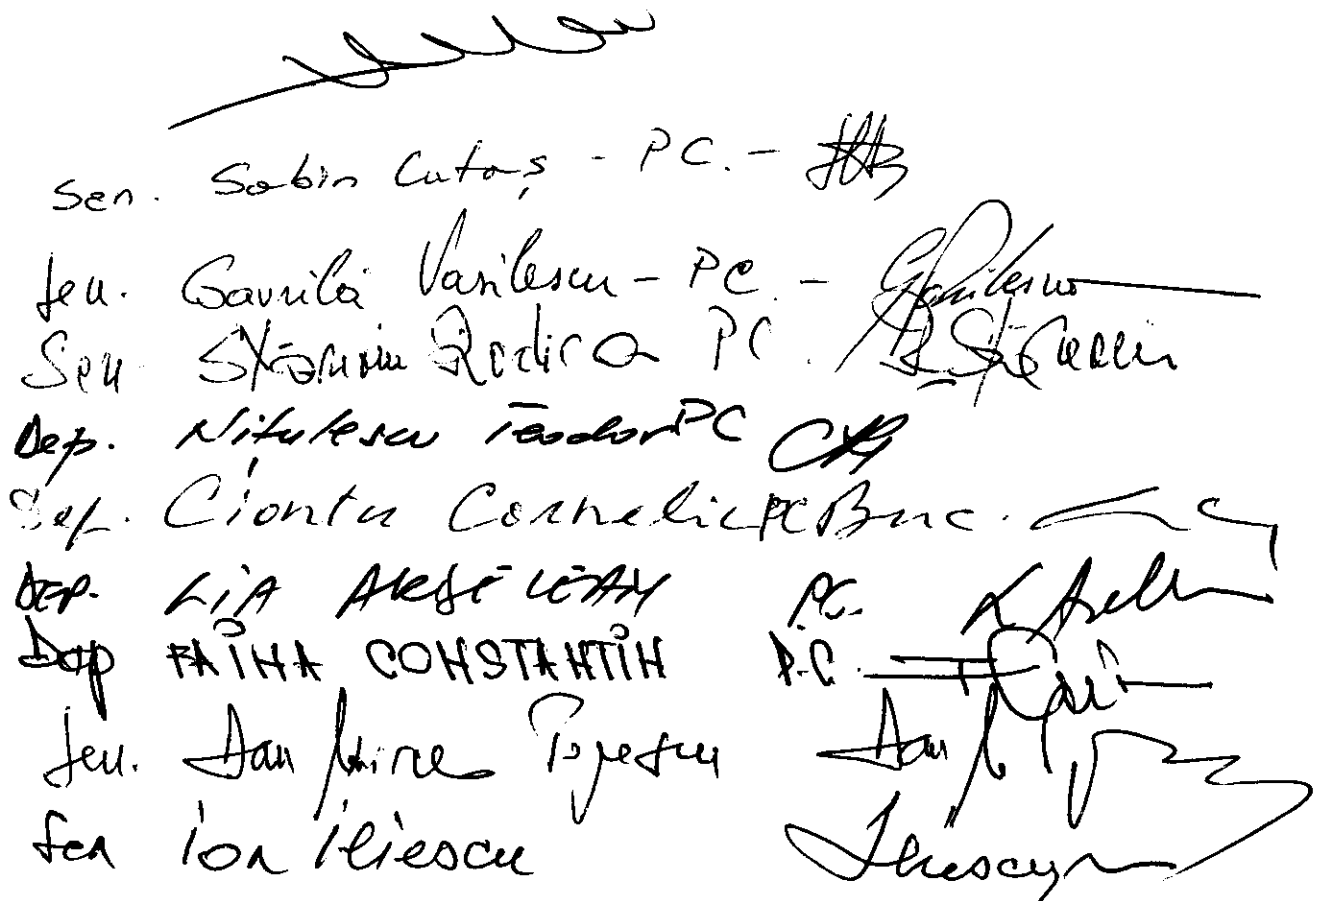 Sen. Sabin Cutaș - PC. -
Sen. Gavrilă Vasilescu - PC - GVasilescu
Sen Stănoiu Rodica PC. R Stănoiu
Dep. Nitulescu Teodor PC
Dep. Ciontu Corneliu PC Buc.
DEP. LIA ARDELEAN PC.
Dep FAINA CONSTANTIN P.C.
Sen. Dan Mircea Popescu Dan
Sen Ion Iliescu Iliescu